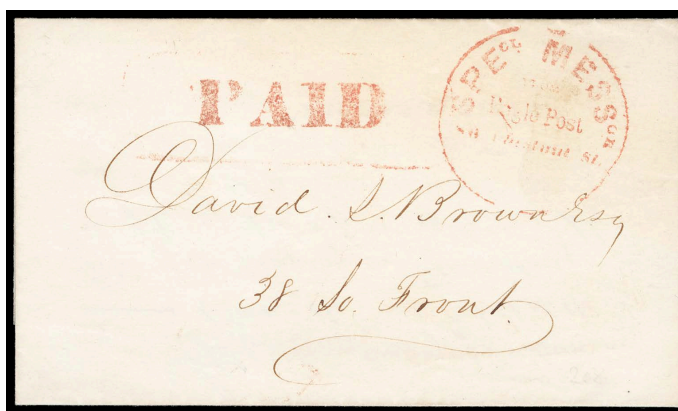 PAID
SPECL MESSGR
Eagle Post
Chestnut St.
David. S. Brown Esq
38 So. Front